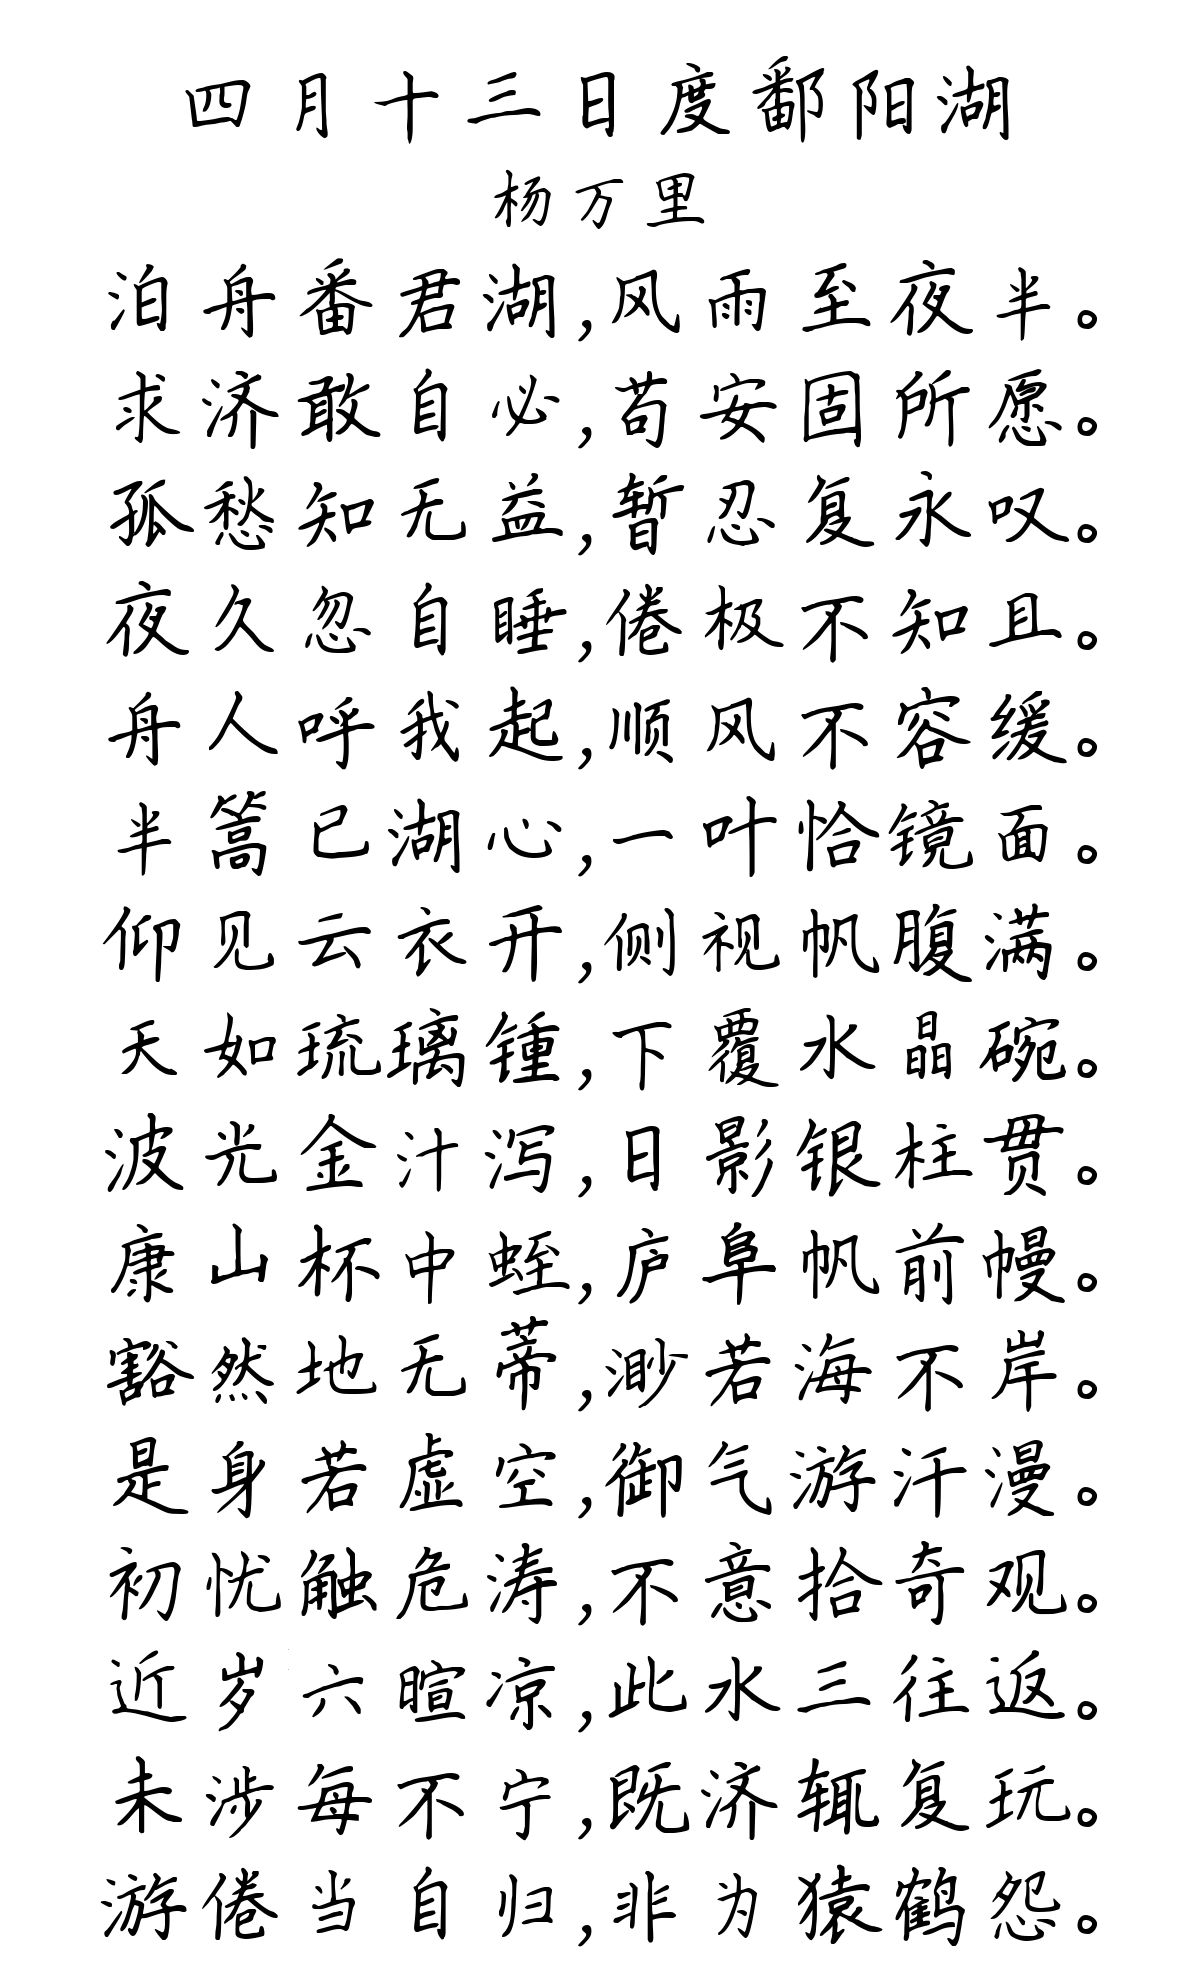 四月十三日度鄱阳湖
杨万里
泊舟番君湖,风雨至夜半。
求济敢自必,苟安固所愿。
孤愁知无益,暂忍复永叹。
夜久忽自睡,倦极不知且。
舟人呼我起,顺风不容缓。
半篙已湖心,一叶恰镜面。
仰见云衣开,侧视帆腹满。
天如琉璃锺,下覆水晶碗。
波光金汁泻,日影银柱贯。
康山杯中蛭,庐阜帆前幔。
豁然地无蒂,渺若海不岸。
是身若虚空,御气游汗漫。
初忧触危涛,不意拾奇观。
近岁六暄凉,此水三往返。
未涉每不宁,既济辄复玩。
游倦当自归,非为猿鹤怨。